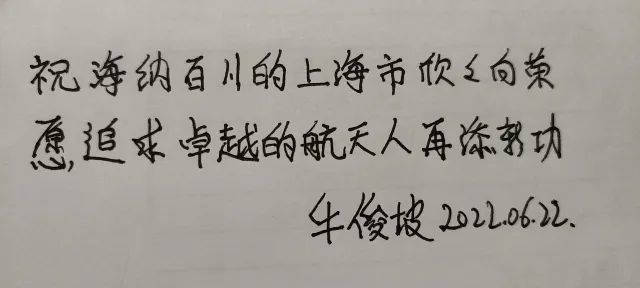 祝海纳百川的上海市欣々向荣
愿,追求卓越的航天人再添新功
牛俊坡 2022.06.22.